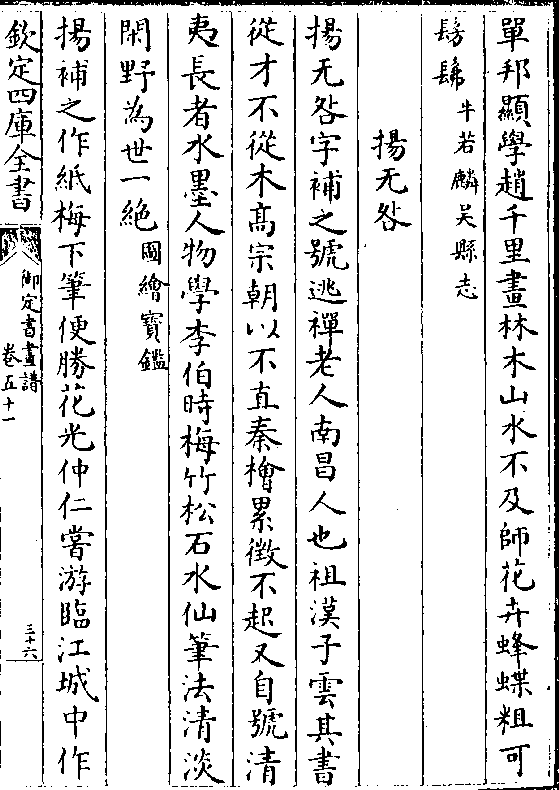 單邦顯學趙千里畫林木山水不及師花卉蜂蝶粗可
髣髴牛若麟吳縣志
揚无咎
揚无咎字補之號逃禪老人南昌人也祖漢子雲其書
從才不從木髙宗朝以不直秦檜累徴不起又自號清
夷長者水墨人物學李伯時梅竹松石水仙筆法清淡
閑野為世一絶圖繪寶鑑
揚補之作紙梅下筆便勝花光仲仁嘗游臨江城中作
欽定四庫全書
御定書畫譜
卷五十一
三十六